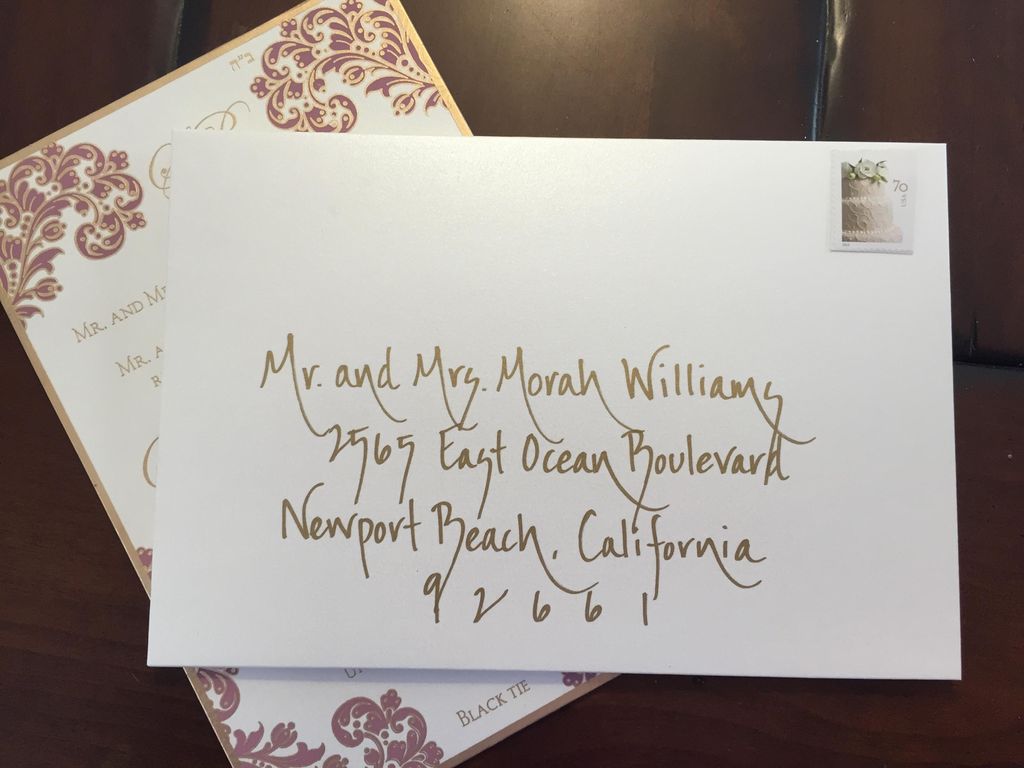 Mr. and Mrs. Morah Williams
2565 East Ocean Boulevard
Newport Beach, California
92661
70
USA
MR. AND
MR.
BLACK TIE